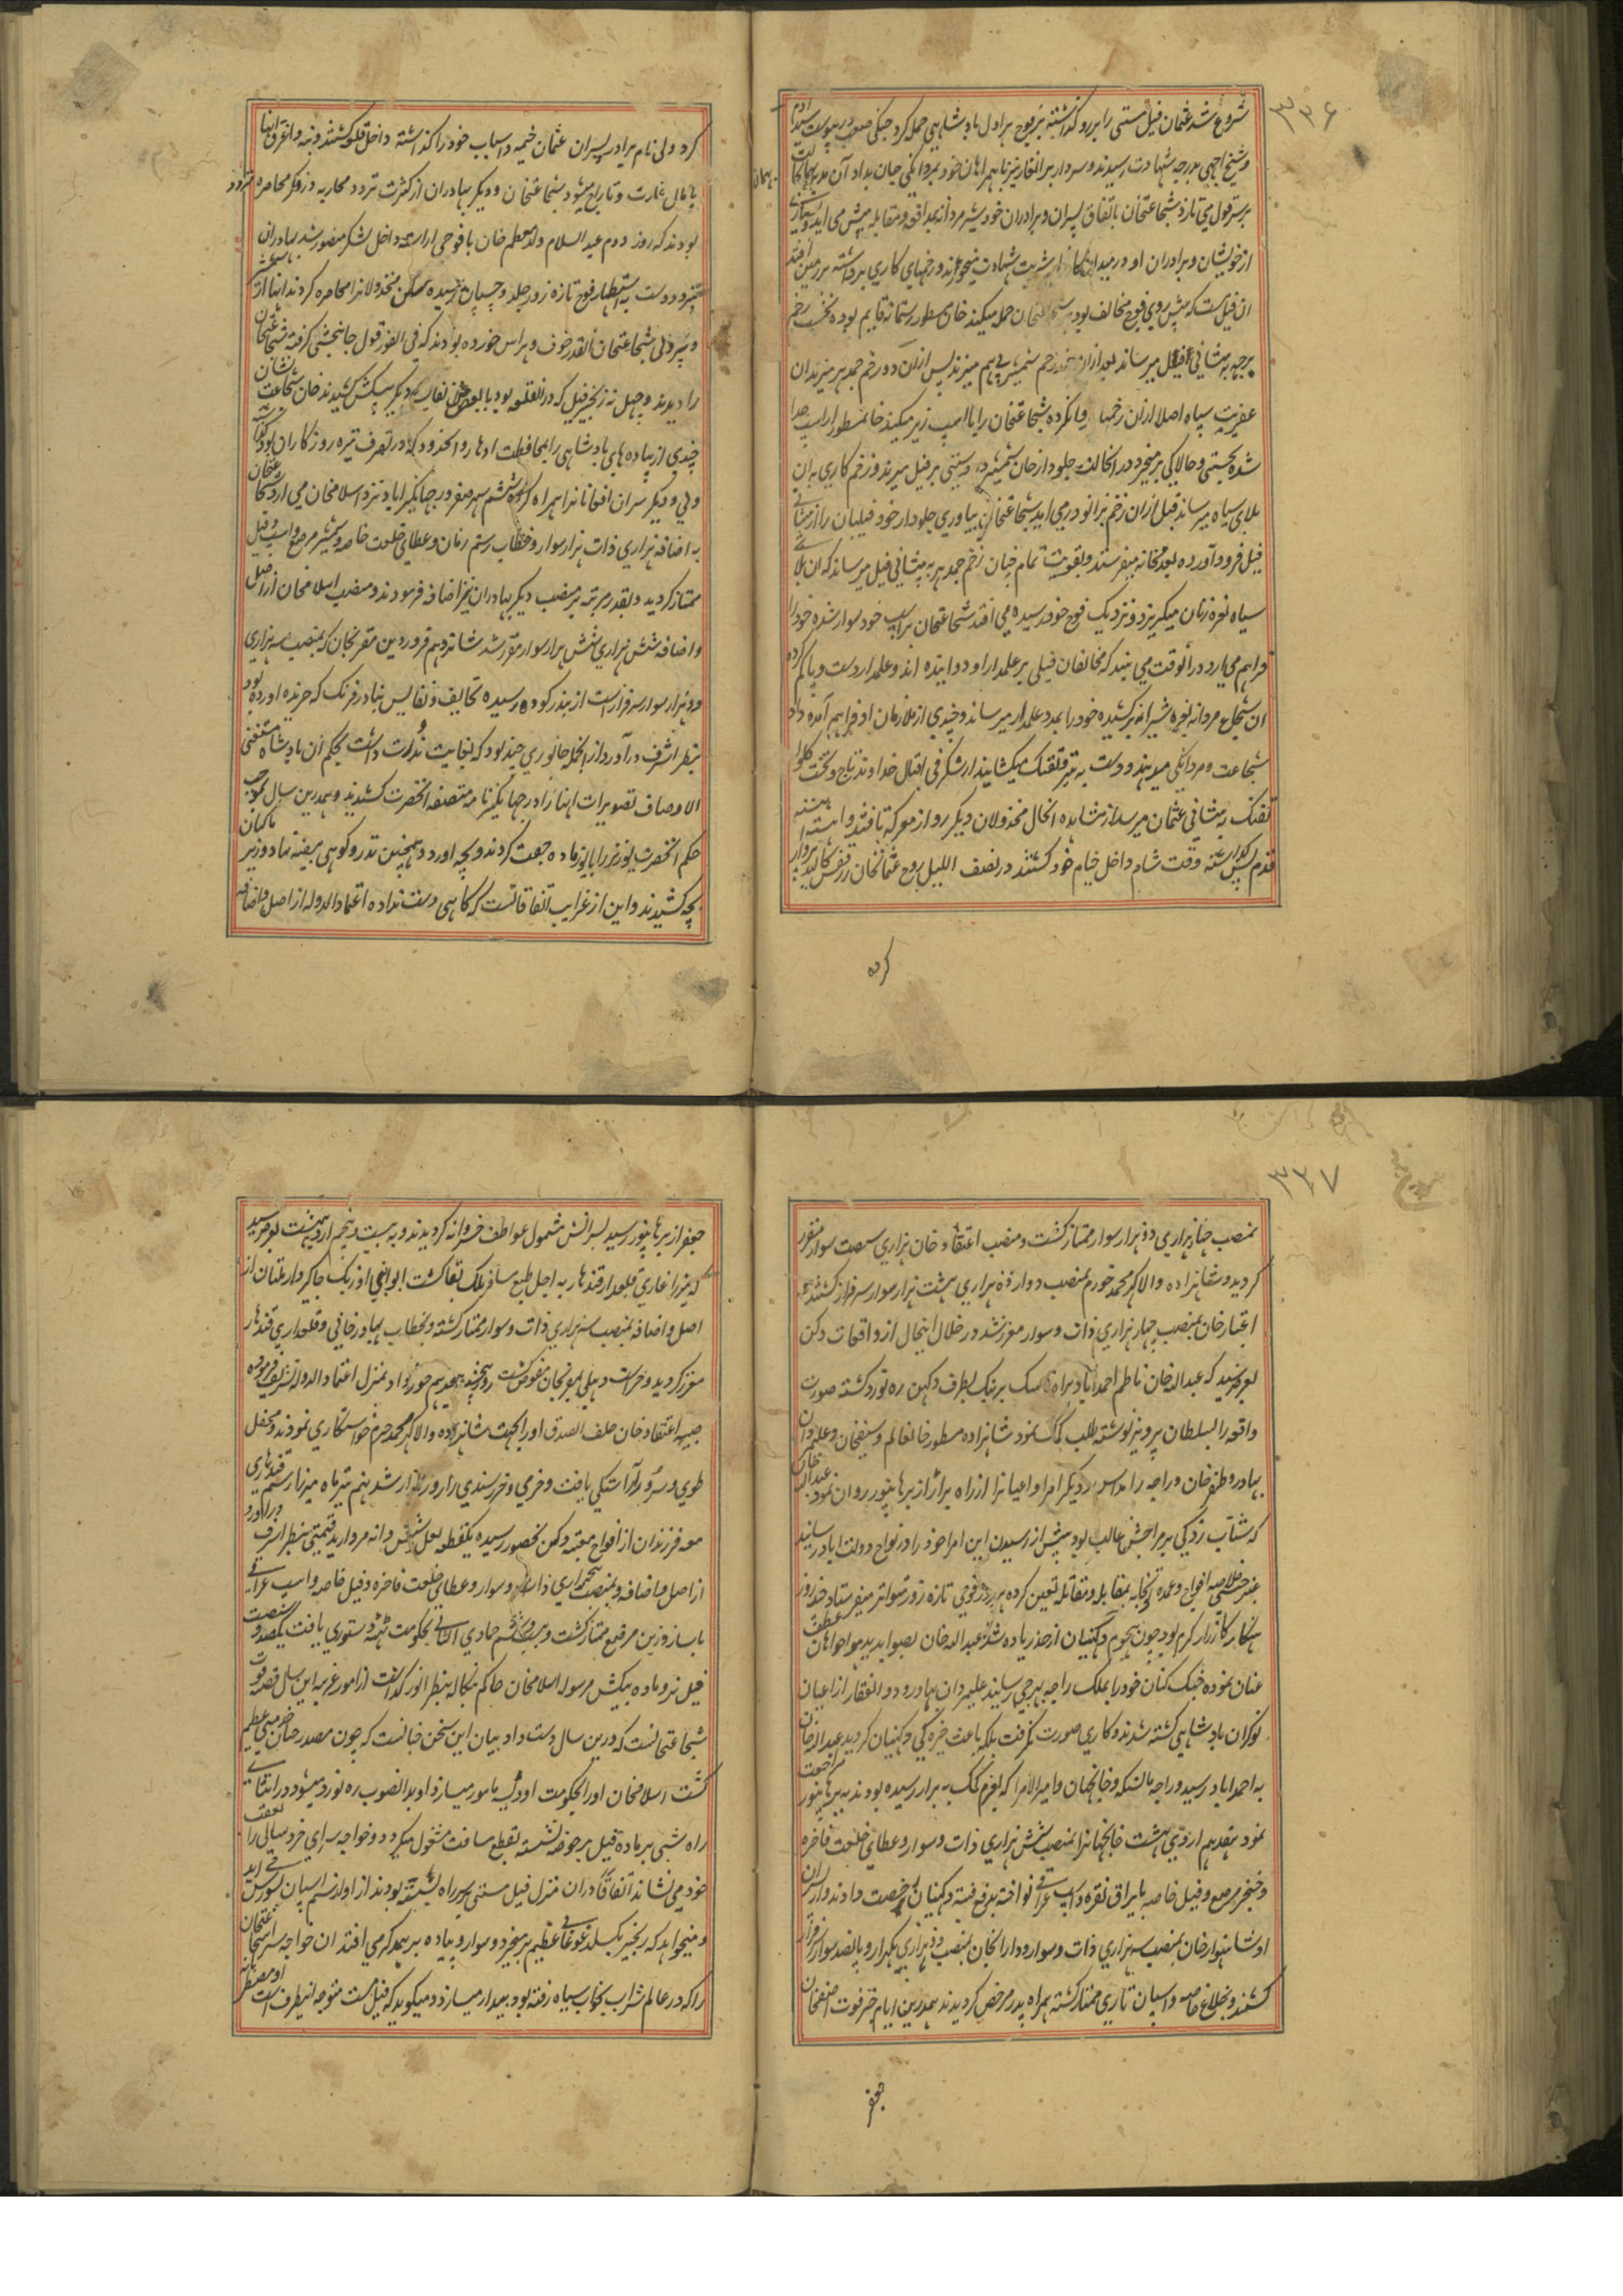 ۳۳۶
شروع شد عثمان فیل مستی را برروکذاشته بر فوج هراول بادشاهی حمله کرد جنکی صعب درپیوست سید ادم
وشیخ اچهی بدرجه شهادت رسیدند وسردار برانغار نیز با همراهان خود بمردانکی جان بداد آن مدبر بهمان
برسرغول می تازد شجاعتخان باتفاق پسران وبرادران خود بمدافعه ومقابله پیش می اید
ازخویشان وبرادران او در میدان شربت شهادت وزخمهای کاری برداشته برزمین افتند
ان فیل مست که پیش روی فوج مخالف بود حمله میکند خان مسطور رستمانه قایم بوده نخست زخم
برچه به پیشانی فیل میرساند بعدازان زخم شمشیر پی هم میزند پس ازان دو زخم جمدهر میزند ان
عفریت سیاه اصلا ازین زخمها پروا نکرده شجاعتخان را با اسپ زیر میکند خانمسطور از اسپ جدا
شده بچستی وچالاکی برمیخیزد درانحالت جلودار خان شمشیر دو دستی بر فیل میزند وزخم کاری بدان
بلای سیاه میرساند فیل ازان زخم بزانو درمی اید شجاعتخان بیاوری جلودار خود فیلبان را از
فیل فرود آورده بعدمخانه میفرستد وبقوت تمام چنان زخم جمدهر به پیشانی فیل میرساند که ان بلای
سیاه نعره زنان میکریزد ونزدیک فوج خود رسیده می افتد شجاعتخان براسپ خود سوار شده خود را
فراهم می ارد درانوقت می بیند که مخالفان فیلی بر علمدار او دوانیده اند وعلمدار دست و پا کم کرده
ان شجاع مردانه نعره شیرانه برکشیده خود را بمدد علمدار میرساند وچندی از ملازمان او فراهم آمده داد
شجاعت ومردانکی میدهند ودست به تیر وتفنک میکشایند از شکرفی اقبال خداوند تاج وتخت کلوله
تفنک به پیشانی عثمان میرسد از مشاهده انحال مخذولان دیکر رو از معرکه تافتند واهسته اهسته
قدم پس کذاشته وقت شام داخل خیام خود کشتند در نصف اللیل روح عثمانخان از قفس کالبد پرواز
کرده
کرد ولی نام برادر وپسران عثمان خیمه واسباب خود را کذاشته داخل قلعه کشتند
پامال غارت وتاراج میشود شجاعتخان ودیکر بهادران از کثرت تردد محاربه در فکر محاصره
بودند که روز دوم عبدالسلام ولد معظم خان با فوجی اراسته داخل لشکر منصور شد بهادران
تیزدست به استظهار فوج تازه زور جلد وچسپان رسیده مسکن مخذولانرا محاصره کردند
شجاعتخان انقدر خوف وهراس خورده بودند که فی الفور قول جانبخشی کرفته شجاعتخان
را دیدند وچهل نه زنجیر فیل که در انقلعه بود با بعضی نفایس دیکر پیشکش کشیدند خان شجاعت نشان
چندی از پیاده های بادشاهی را بمحافظت ادها
ولی ودیکر سران افغانانرا همراه کرفته ششم شهر صفر در جهانکیر اباد نزد اسلامخان می ارد شجاعتخان
به اضافه هزاری ذات هزار سوار وخطاب رستم زمان وعطای خلعت خاصه وشمشیر مرصع واسپ وفیل
ممتاز کردید وبقدر مرتبه بر منصب دیکر بهادران نیز اضافه فرمودند ومنصب اسلامخان از اصل
واضافه شش هزاری شش هزار سوار مقرر شد شانزدهم فروردین مقربخان که بمنصب سه هزاری
ودوهزار سوار سرفراز است از بندر کوده رسیده تحایف ونفایس بنادر فرنک که خریده اورده بود
بنظر اشرف درآورد ازانجمله جانوری چند بود که بغایت ندرت داشت بحکم ان بادشاه مستغنی
الاوصاف تصویرات اینها را در جهانکیرنامه متصفه انحضرت کشیدند وهمدرین سال بموجب
حکم انحضرت یوزنر را با یوز ماده جفت کردند وبچه اورد وهمچنین تدرو کوهی بیضه نهاد
بچه کشیدند واین از غرایب اتفاقاتست که کاهی دست نداده اعتمادالدوله از اصل واضافه
۳۳۷
بمنصب چهارهزاری دوهزار سوار ممتاز کشت ومنصب اعتقاد خان هزاری سیصد سوار مقرر
کردید وشاهزاده والاکهر محمد خورم بمنصب دوازده هزاری هشت هزار سوار سرفراز کشتند
اعتبارخان بمنصب چهارهزاری ذات وسوار معزز شد در خلال اینحال از واقعات دکن
بعرض رسید که عبدالله خان ناظم احمداباد براه ناسک برنبک بطرف دکهن ره نورد کشته صورت
واقعه را بسلطان پرویز نوشته طلب کمک نمود شاهزاده مسطور خانعالم وسیفخان وعلیمردان
بهادر وظفرخان وراجه رامداس ودیکر امرا واعیانرا از راه برار از برهانپور روان نمود عبدالله خان
که شتاب زدکی بر مزاجش غالب بود پیش از رسیدن این امرا خود را در نواح دولت اباد رسانید
عنبر حبشی خلاصه افواج وعمده نجابه بمقابله ومقاتله تعین کرده هر روز فوجی تازه زور متواتر میفرستاد چند روز
هنکامه کارزار کرم بود چون هجوم دکنیان از حد زیاده شد عبدالله خان بصوابدید هواخواهان عطف
عنان نموده جنک کنان خود را بملک راجه بهرجی رسانید علیمردان بهادر وذوالفقار از اعیان
نوکران بادشاهی کشته شدند وکاری صورت نکرفت بلکه باعث خیره کی دکنیان کردید عبدالله خان
به احمداباد رسید وراجه بانسکه وخانجهان وامیرالامرا که بعزم کمک به برار رسیده بودند به برهانپور مراجعت
نمود هفدهم اردی بهشت خانجهانرا بمنصب شش هزاری ذات وسوار وعطای خلعت فاخره
وخنجر مرصع وفیل خاصه با یراق نقره واسپ عراقی نواخته بدفع فتنه دکنیان رخصت دادند
او شاهنوازخان بمنصب سه هزاری ذات وسوار وداراب خان بمنصب دوهزاری یکهزار وپانصد سوار سرفراز
کشتند وخلاع خاصه واسپان تازی ممتاز کشته همراه پدر مرخص کردیدند همدرین ایام خبر فوت اصفخان
جعفر
جعفر از برهانپور رسید پسرانش مشمول عواطف خسروانه کردیدند وبه بیست وپنجم اردیبهشت بعرض رسید
که میرزا غازی قلعدار قندهار به اجل طبع مسافر ملک بقا کشت ابوالنبی اوزبک جاکیردار ملتان از
اصل واضافه بمنصب سه هزاری ذات وسوار ممتاز کشته وبخطاب بهادرخانی وقلعداری قندهار
معزز کردید وحراست دهلی بمقربخان مفوض کشت روز پنجشنبه هجدهم خورداد بمنزل اعتمادالدوله تشریف فرموده
صبیه اعتقادخان خلف الصدق او را بجهت شاهزاده والاکهر محمد خرم خواستکاری نمودند ومحفل
طوی وسرور آراستکی یافت وخرمی وخرسندی را روز بازار شد نهم تیرماه میرزا رستم قندهاری
معه فرزندان از افواج متعینه دکهن بحضور رسیده یکقطعه لعل وشش دانه مروارید قیمتی بنظر اشرف دراورد
از اصل واضافه وبمنصب پنجهزاری ذات وسوار وعطای خلعت فاخره وفیل خاصه واسپ عراقی
با ساز وزین مرصع ممتاز کشت وبیست وششم جمادی الثانی بحکومت تهته دستوری یافت یکصد وشصت
فیل نر وماده پیشکش مرسوله اسلامخان حاکم بنکاله بنظر انور کذاشت از امور غریبه این سال قصه فوت
شجاعتخانست که درین سال دست داد بیان این سخن چنانست که چون مصدر چنین خدمتی عظیم
کشت اسلامخان او را بحکومت اودیسه مامور میسازد او بدانصوب ره نورد میشود در اثنای
راه شبی بر ماده فیل بر چوضه نشسته بقطع مسافت مشغول میکردد وخواجه سرای خردسالی را بعقب
خود می نشاند اتفاقا دران منزل فیل مستی بر سر راه بسته بودند از اواز سم اسپان بشورش می اید
ومیخواهد که زنجیر بکسلد غوغای عظیم برمیخیزد وسوار وپیاده بر یکدیکر می افتد ان خواجه سرا شجاعتخان
را که در عالم شراب بخواب سیاه رفته بود بیدار میسازد ومیکوید که فیل مست متوجه اینطرف است او مضطربانه